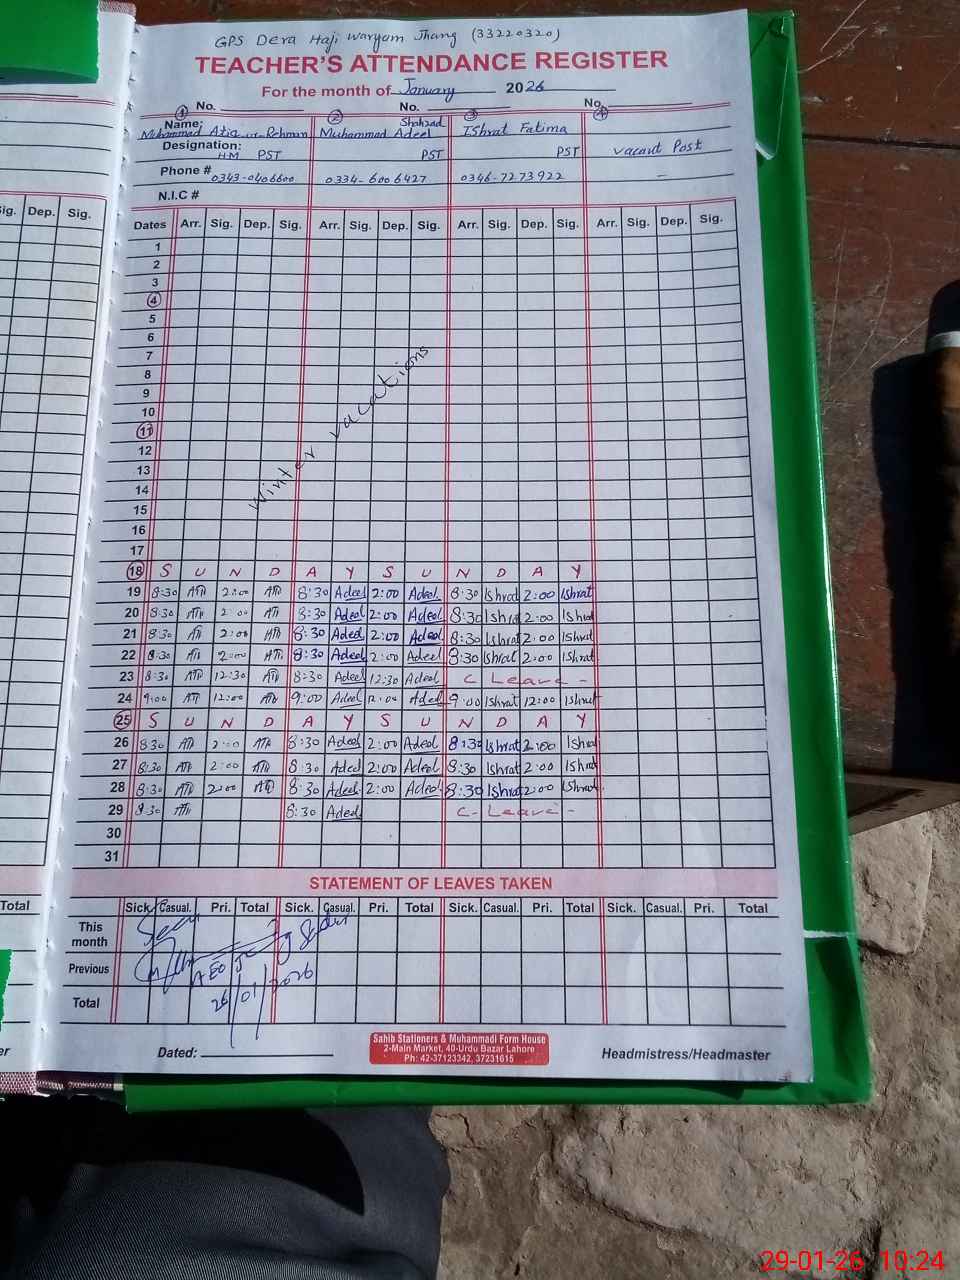 GPS Dera Haji Waryam Jhang (33220320)
TEACHER'S ATTENDANCE REGISTER
For the month of January 2026
① No. ② No. ③ No. ④
Name: Muhammad Atiq-ur-Rehman Muhammad Adeel Shahzad Ishrat Fatima
Designation: HM PST PST PST Vacant Post
Phone # 0343-0406600 0334-6006427 0346-7273922 -
N.I.C #
Sig. Dep. Sig. Dates Arr. Sig. Dep. Sig. Arr. Sig. Dep. Sig. Arr. Sig. Dep. Sig. Arr. Sig. Dep. Sig.
1
2
3
4
5
6
7
8
9
10
11
12
13
14
15
16
17
Winter vacations
18 S U N D A Y S U N D A Y
19 8:30 ATR 2:00 ATR 8:30 Adeel 2:00 Adeel 8:30 Ishrat 2:00 Ishrat
20 8:30 ATR 2:00 ATR 8:30 Adeel 2:00 Adeel 8:30 Ishrat 2:00 Ishrat
21 8:30 ATR 2:00 ATR 8:30 Adeel 2:00 Adeel 8:30 Ishrat 2:00 Ishrat
22 8:30 ATR 2:00 ATR 8:30 Adeel 2:00 Adeel 8:30 Ishrat 2:00 Ishrat
23 8:30 ATR 12:30 ATR 8:30 Adeel 12:30 Adeel C Leave -
24 9:00 ATR 12:00 ATR 9:00 Adeel 12:00 Adeel 9:00 Ishrat 12:00 Ishrat
25 S U N D A Y S U N D A Y
26 8:30 ATR 2:00 ATR 8:30 Adeel 2:00 Adeel 8:30 Ishrat 2:00 Ishrat
27 8:30 ATR 2:00 ATR 8:30 Adeel 2:00 Adeel 8:30 Ishrat 2:00 Ishrat
28 8:30 ATR 2:00 ATR 8:30 Adeel 2:00 Adeel 8:30 Ishrat 2:00 Ishrat
29 8:30 ATR 8:30 Adeel C- Leave -
30
31
STATEMENT OF LEAVES TAKEN
Total Sick. Casual. Pri. Total Sick. Casual. Pri. Total Sick. Casual. Pri. Total Sick. Casual. Pri. Total
This month
Previous
AEO
26/01/2026
Total
Dated:
Sahib Stationers & Muhammadi Form House
2-Main Market, 40-Urdu Bazar Lahore
Ph: 42-37123342, 37231615
Headmistress/Headmaster
29-01-26 10:24